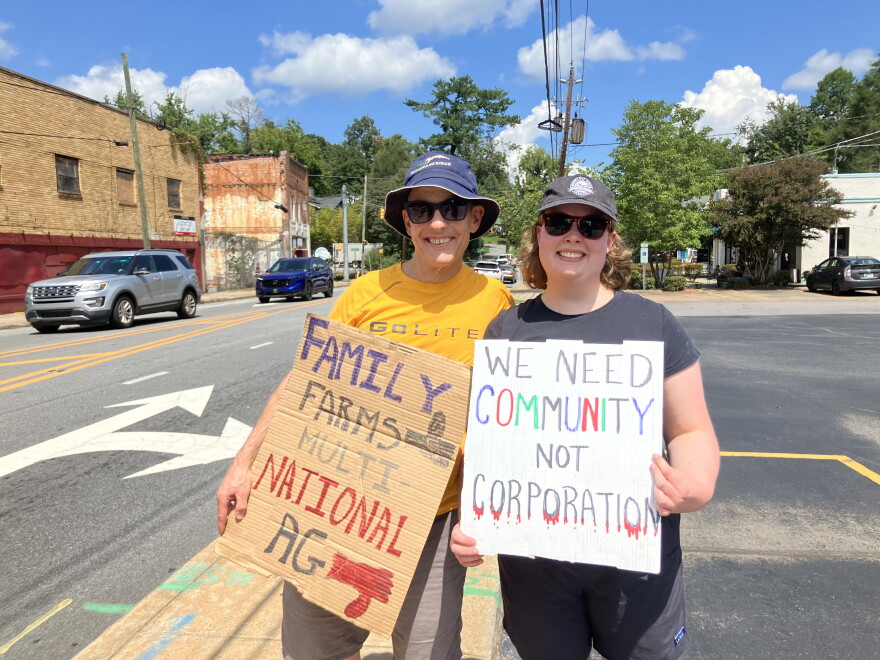 GOLITE
FAMILY
FARMS
MULTI-
NATIONAL
AG
WE NEED
COMMUNITY
NOT
CORPORATION